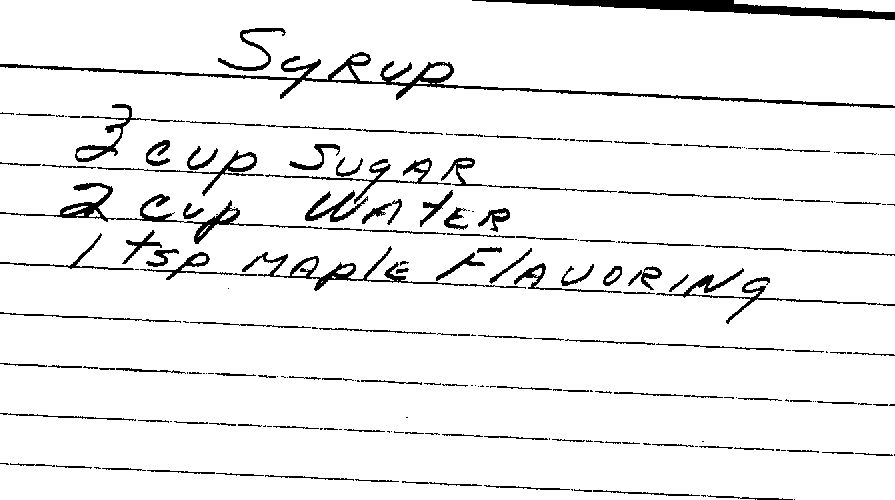 Syrup
3 cup Sugar
2 cup Water
1 tsp Maple Flavoring